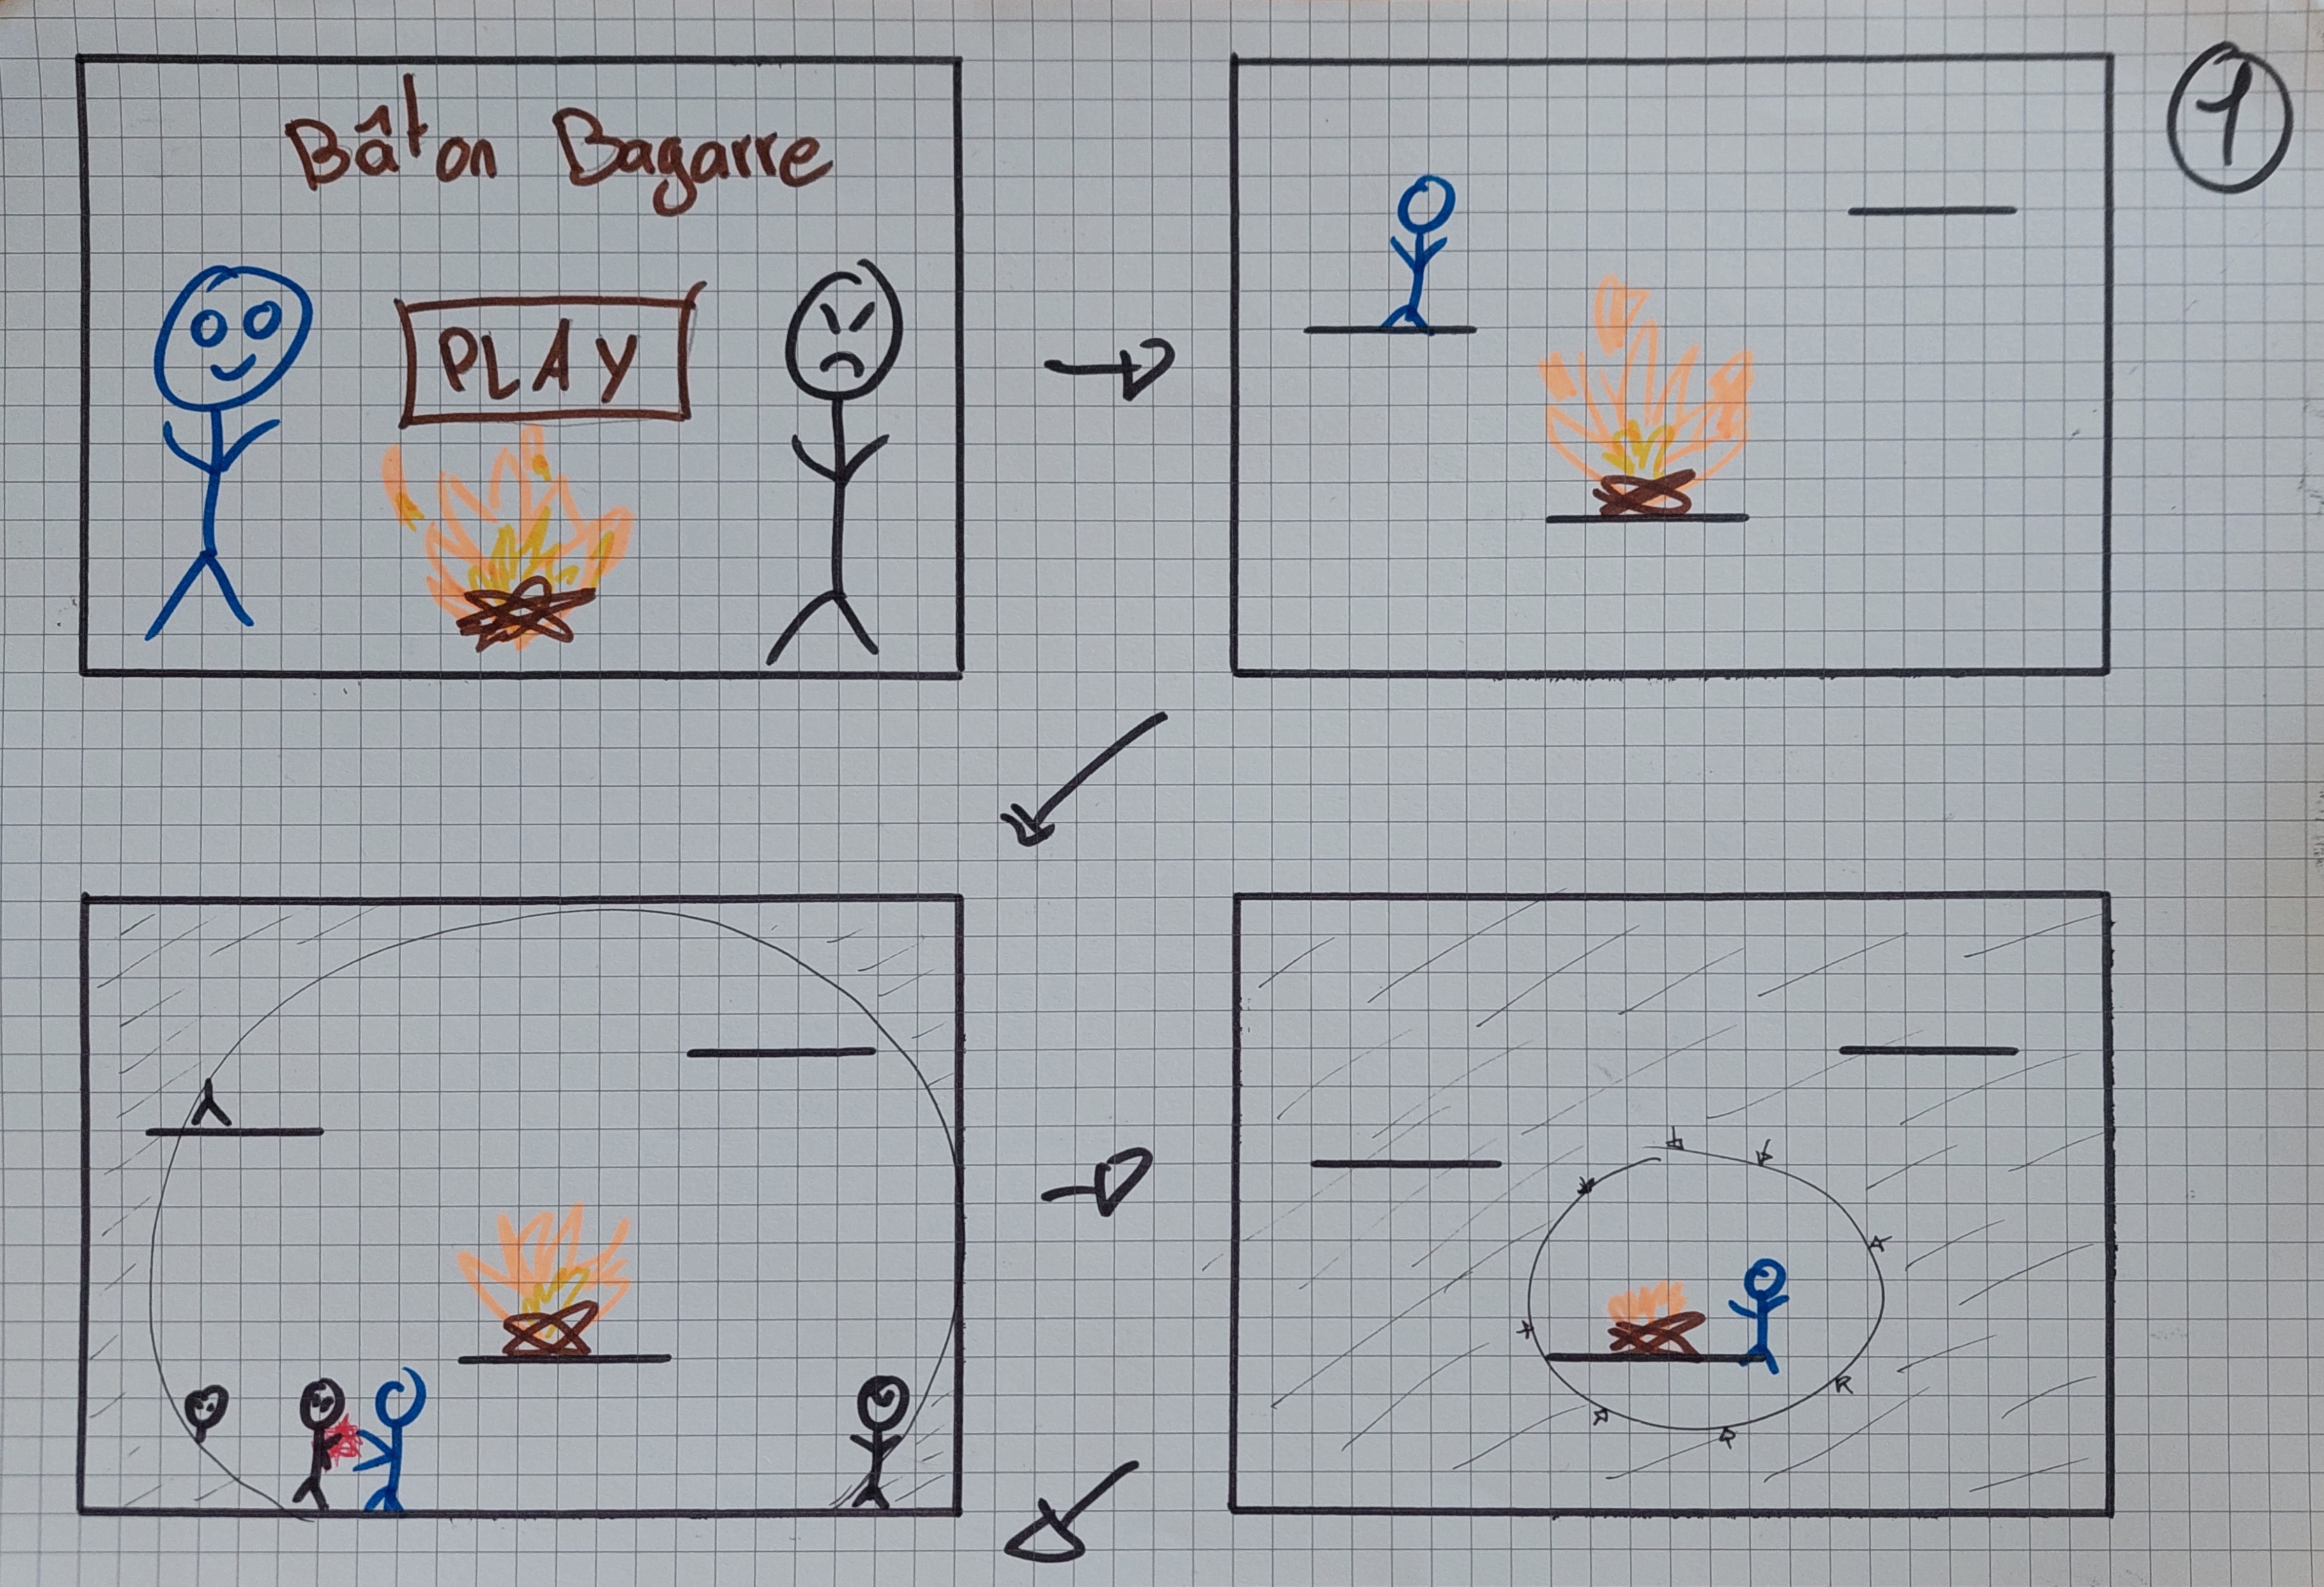 Bâton Bagarre
1
PLAY